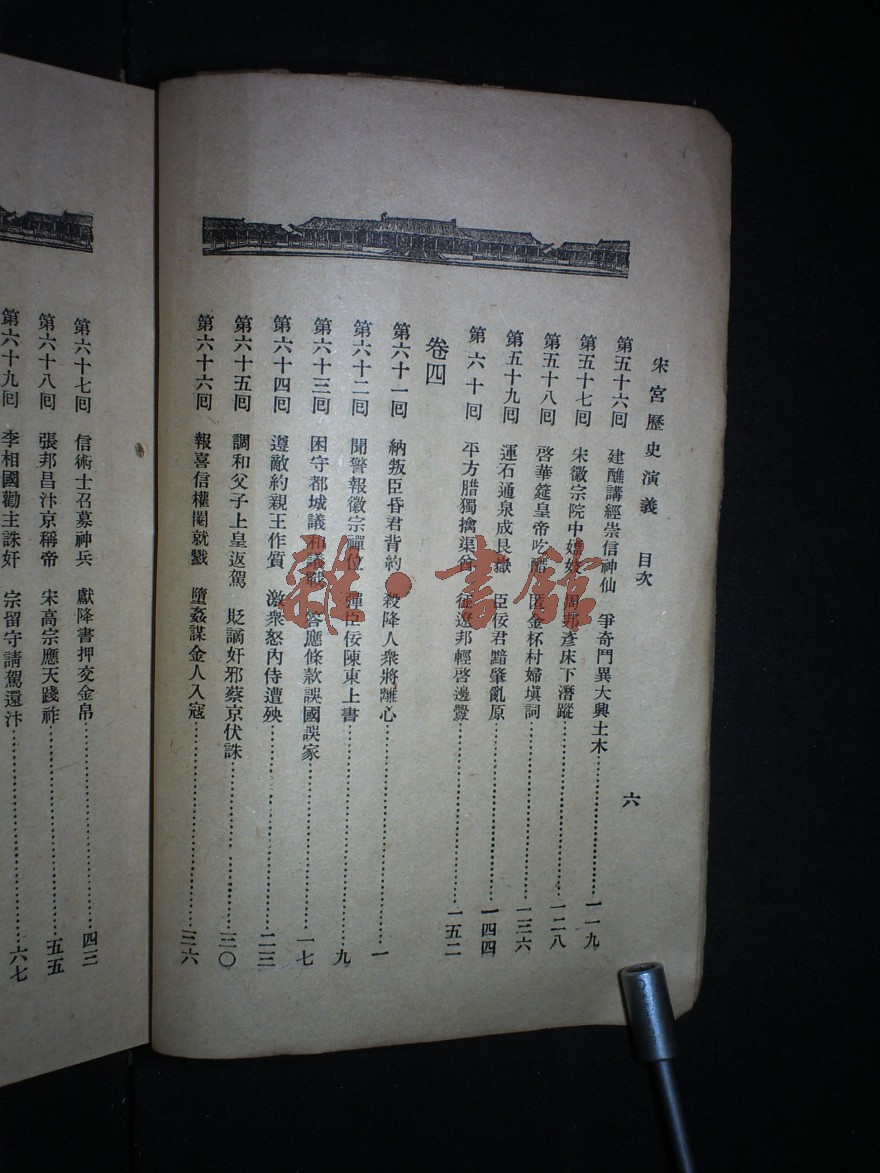 宋宮歷史演義　目次　六
第五十六囘　建醮講經崇信神仙　爭奇鬥異大興土木…………一一九
第五十七囘　宋徽宗院中嫖妓　周邦彥床下潛蹤…………一二八
第五十八囘　啓華筵皇帝吃醋　匿金杯村婦塡詞…………一三六
第五十九囘　運石通泉成艮嶽　臣佞君黯肇亂原…………一四四
第六十囘　平方腊獨擒渠酋　征遼邦輕啓邊釁…………一五二
卷四
第六十一囘　納叛臣昏君背約　殺降人衆將離心…………一
第六十二囘　聞警報徽宗禪位　彈臣佞陳東上書…………九
第六十三囘　困守都城議和議戰　答應條款誤國誤家…………一七
第六十四囘　遵敵約親王作質　激衆怒內侍遭殃…………二三
第六十五囘　調和父子上皇返駕　貶謫奸邪蔡京伏誅…………三〇
第六十六囘　報喜信權閹就戮　墮姦謀金人入寇…………三六
第六十七囘　信術士召募神兵　獻降書押交金帛…………四三
第六十八囘　張邦昌汴京稱帝　宋高宗應天踐祚…………五五
第六十九囘　李相國勸主誅奸　宗留守請駕還汴…………六七
雜·書館